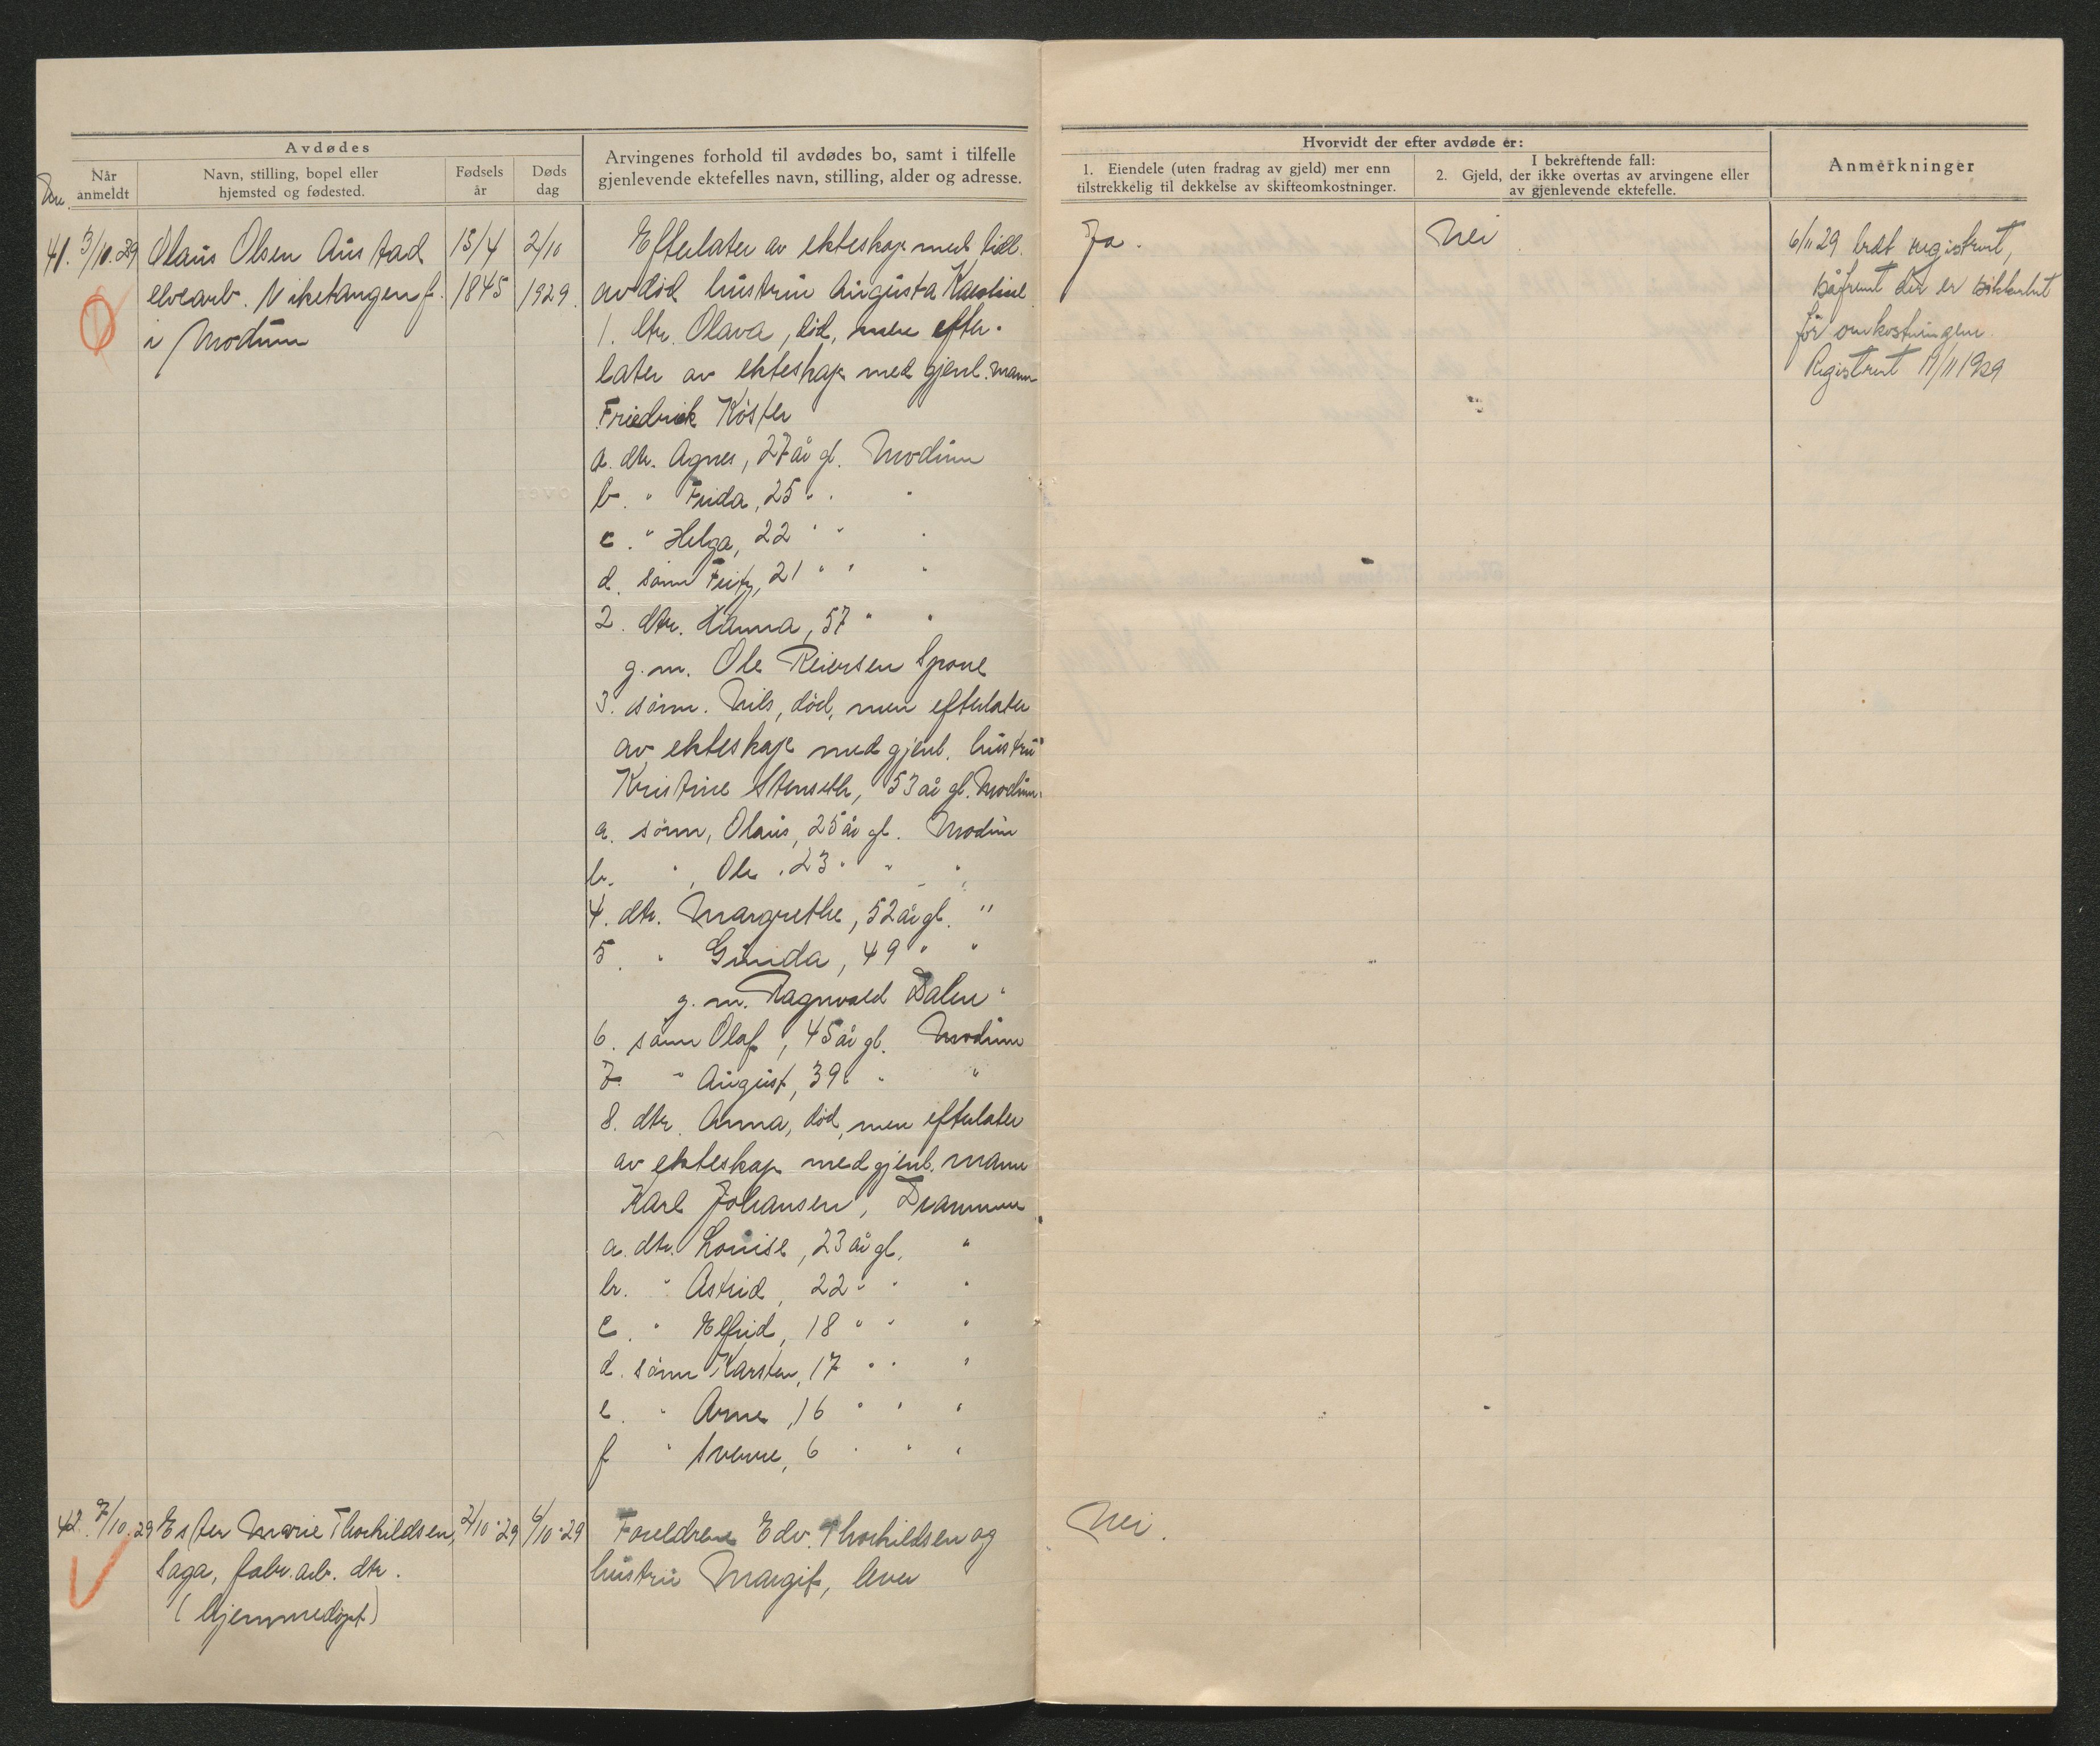 Avdødes
Nr.
Når anmeldt
Navn, stilling, bopel eller hjemsted og fødested.
Fødsels år
Døds dag
Arvingenes forhold til avdødes bo, samt i tilfelle
gjenlevende ektefelles navn, stilling, alder og adresse.
Hvorvidt der efter avdøde er:
1. Eiendele (uten fradrag av gjeld) mer enn
tilstrekkelig til dekkelse av skifteomkostninger.
I bekreftende fall:
2. Gjeld, der ikke overtas av arvingene eller
av gjenlevende ektefelle.
Anmerkninger
41. 3/10.29 Olaus Olsen Austad 15/4 2/10
elvearb. Viketangen f. 1845 1929.
i Modum
Efterlater av ekteskap med tidl.
avdød hustru Augusta Karoline
1. dtr. Olava, död, men efter-
later av ekteskap med gjenl. mann
Friedrick Köster
a. dtr. Agnes, 27 år gl. Modum
b. " Frida, 25 " " "
c. " Helga, 22 " " "
d. sönn Fritz, 21 " " "
2. dtr. Hanna, 57 " "
g.m. Ole Reiersen Spone
3. sönn. Nils, död, men efterlater
av ekteskap med gjenl. hustru
Kristine Stenseth, 53 år gl. Modum.
a. sönn, Olaus, 25 år gl. Modum
b. ", Ole, 23 " " "
4. dtr. Margrethe, 52 år gl. "
5. " Gunda, 49 " "
g.m. Ragnvald Dalen "
6. sönn Olaf, 45 år gl. Modum
7. " August, 39 " " "
8. dtr. Anna, död, men efterlater
av ekteskap med gjenl. mann
Karl Johansen, Drammen
a. dtr. Louise, 23 år gl. "
b. " Astrid, 22 " " "
c. " Elfrid, 18 " " "
d. sönn Karsten, 17 " " "
e. " Arne, 16 " " "
f " Sverre, 6 " " "
Ja.
Nei
6/11 29 bedt registrert,
såfremt der er sikkerhet
for omkostningene.
Registrert 11/11 1929
42. 7/10.29 Ester Marie Thorkildsen, 2/10.29 6/10.29
Saga, fabr.arb. dtr.
(hjemmedöpt)
Foreldrene Edv. Thorkildsen og
hustru Margit, lever
Nei.